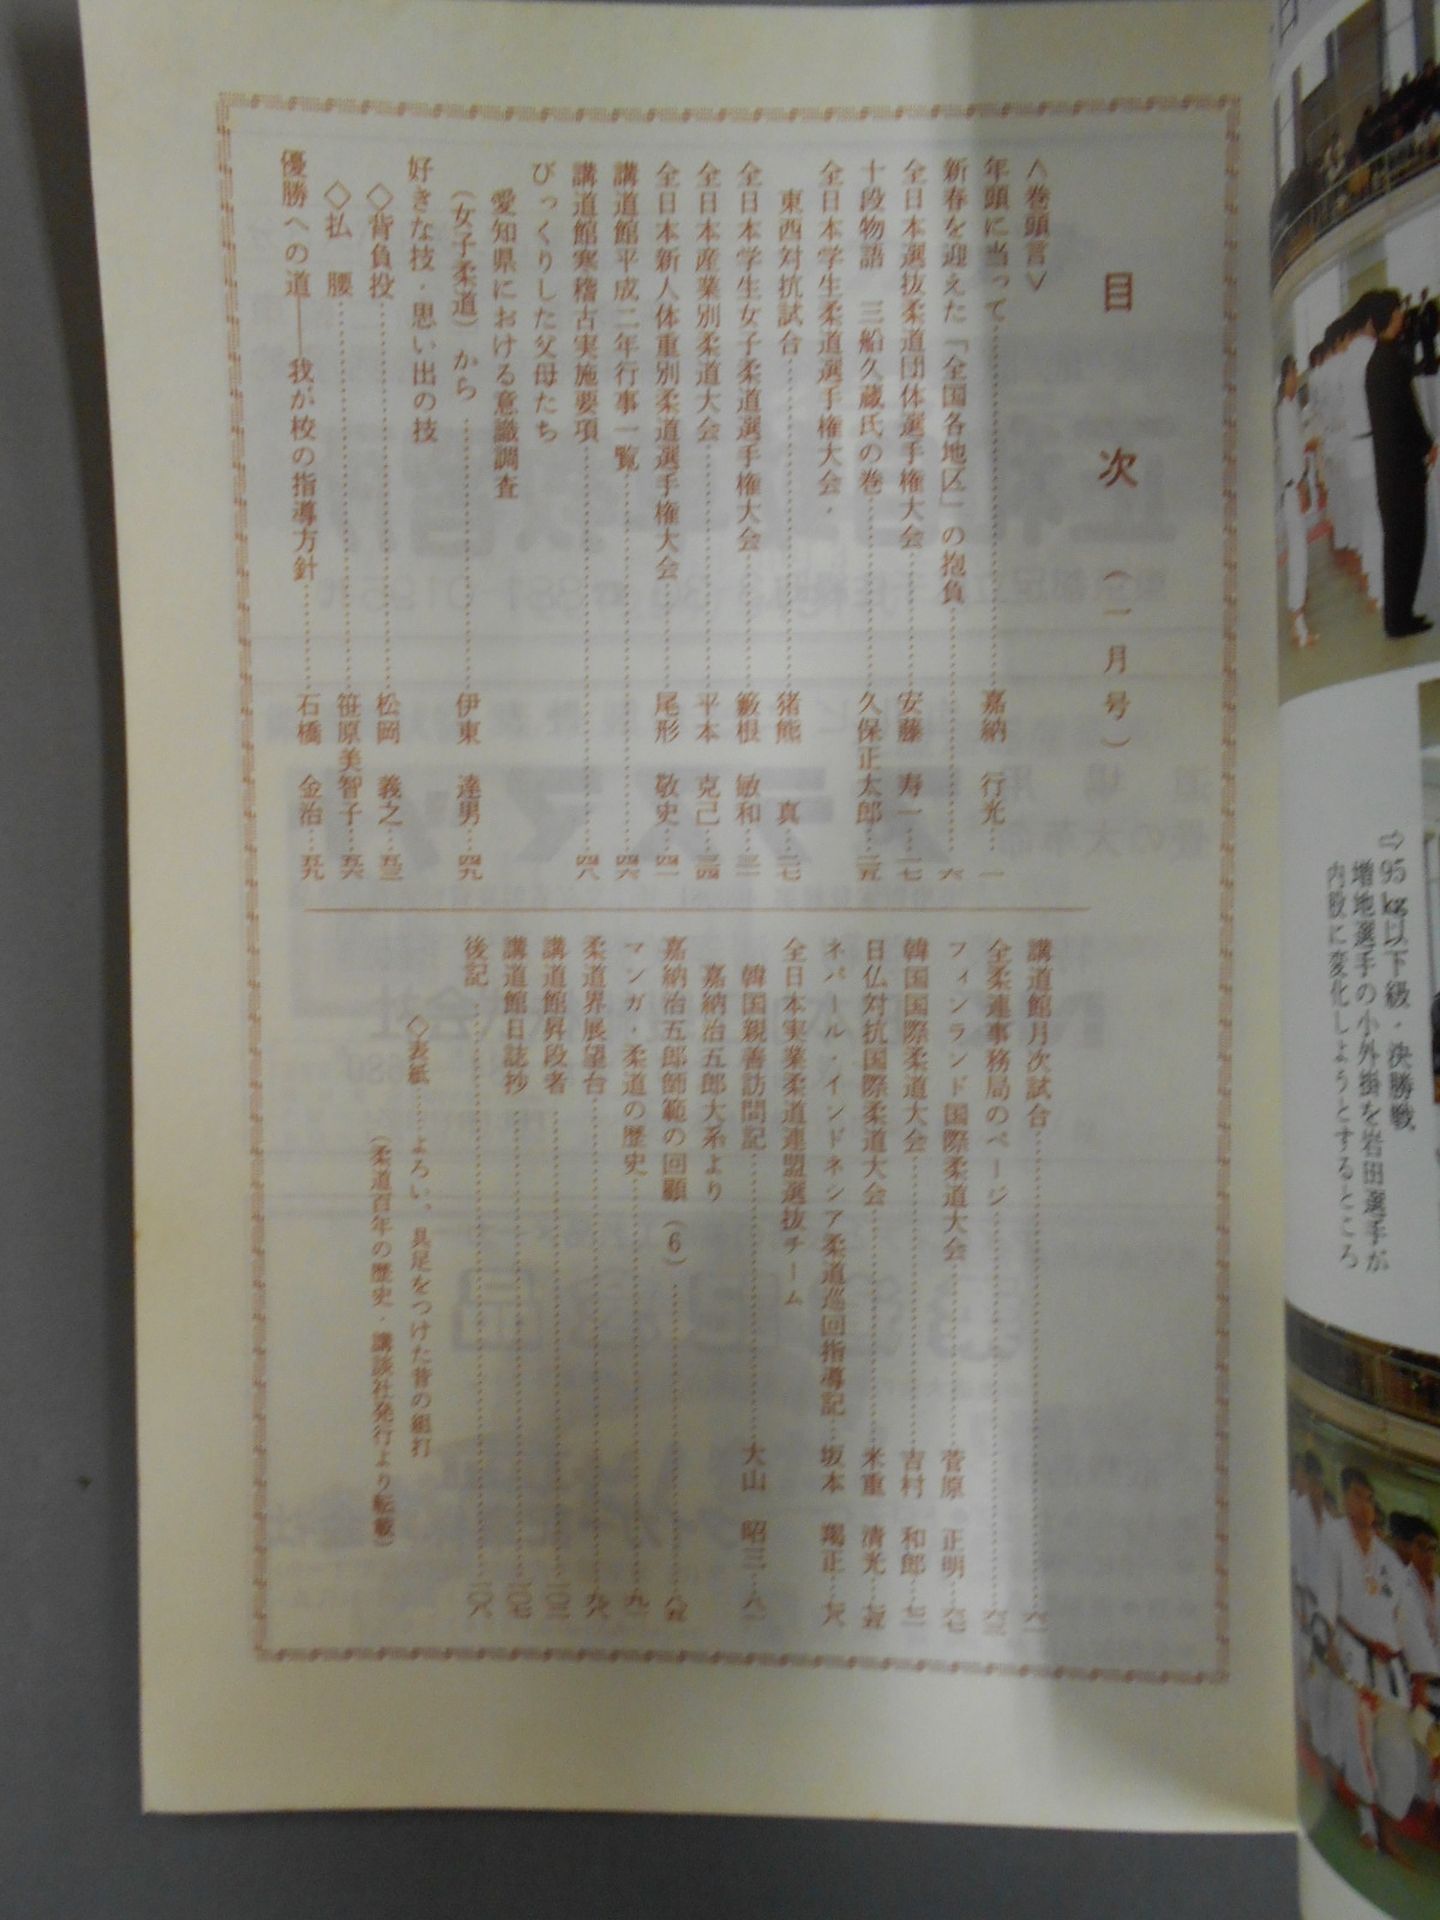 目次（一月号）
＜巻頭言＞
年頭に当って……嘉納 行光…一
新春を迎えた「全国各地区」の抱負……六
全日本選抜柔道団体選手権大会……安藤 寿一…一七
十段物語 三船久蔵氏の巻……久保正太郎…二五
全日本学生柔道選手権大会・
東西対抗試合……猪熊 真…二七
全日本学生女子柔道選手権大会……籔根 敏和…三一
全日本産業別柔道大会……平本 克己…三四
全日本新人体重別柔道選手権大会……尾形 敬史…四一
講道館平成二年行事一覧……四六
講道館寒稽古実施要項……四八
びっくりした父母たち
愛知県における意識調査
（女子柔道）から……伊東 達男…四九
好きな技・思い出の技
◇背負投……松岡 義之…五三
◇払 腰……笹原美智子…五六
優勝への道——我が校の指導方針……石橋 金治…五九
講道館月次試合……六一
全柔連事務局のページ……六三
フィンランド国際柔道大会……菅原 正明…六七
韓国国際柔道大会……吉村 和郎…七一
日仏対抗国際柔道大会……米重 清光…七五
ネパール・インドネシア柔道巡回指導記…坂本 陽正…七八
全日本実業柔道連盟選抜チーム
韓国親善訪問記……大山 昭三…八一
嘉納治五郎大系より
嘉納治五郎師範の回顧（6）……八五
マンガ・柔道の歴史……九一
柔道界展望台……九八
講道館昇段者……一〇三
講道館日誌抄……一〇七
後記……一〇八
◇表紙……よろい、具足をつけた昔の組打
（柔道百年の歴史・講談社発行より転載）
⇨95kg以下級・決勝戦
増地選手の小外掛を岩田選手が
内股に変化しようとするところ